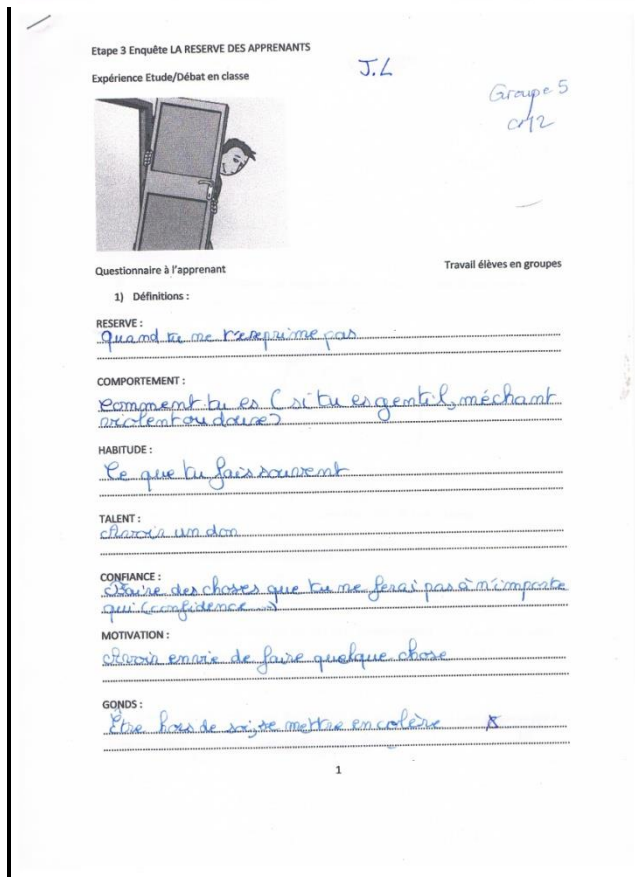 Etape 3 Enquête LA RESERVE DES APPRENANTS
J.L
Expérience Etude/Débat en classe
Groupe 5
CM2
Questionnaire à l'apprenant
Travail élèves en groupes
1) Définitions :
RESERVE :
quand tu ne pas
COMPORTEMENT :
comment tu es (si tu es gentil, méchant
violent ou doux)
HABITUDE :
Ce que tu fais souvent
TALENT :
Avoir un don
CONFIANCE :
Faire des choses que tu ne ferai pas à n'importe
qui (confidence
MOTIVATION :
Avoir envie de faire quelque chose
GONDS :
Être hors de soi, se mettre en colère
1